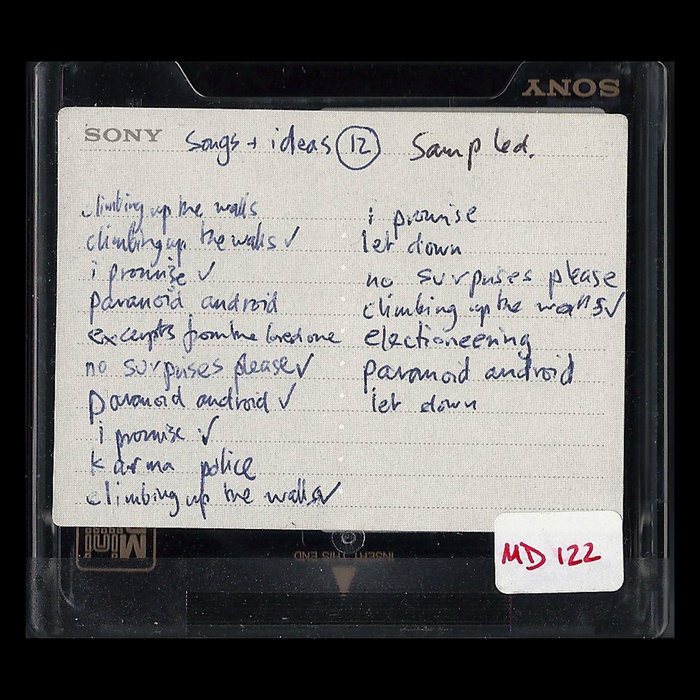 SONY
SONY songs + ideas 12 Sampled.
climbing up the walls
climbing up the walls ✓
i promise ✓
paranoid android
excerpts from the loved one
no surpuses please ✓
paranoid android ✓
i promise ✓
karma police
climbing up the walls ✓
i promise
let down
no surpuses please
climbing up the walls ✓
electioneering
paranoid android
let down
MD 122
Mini
INSERT THIS END